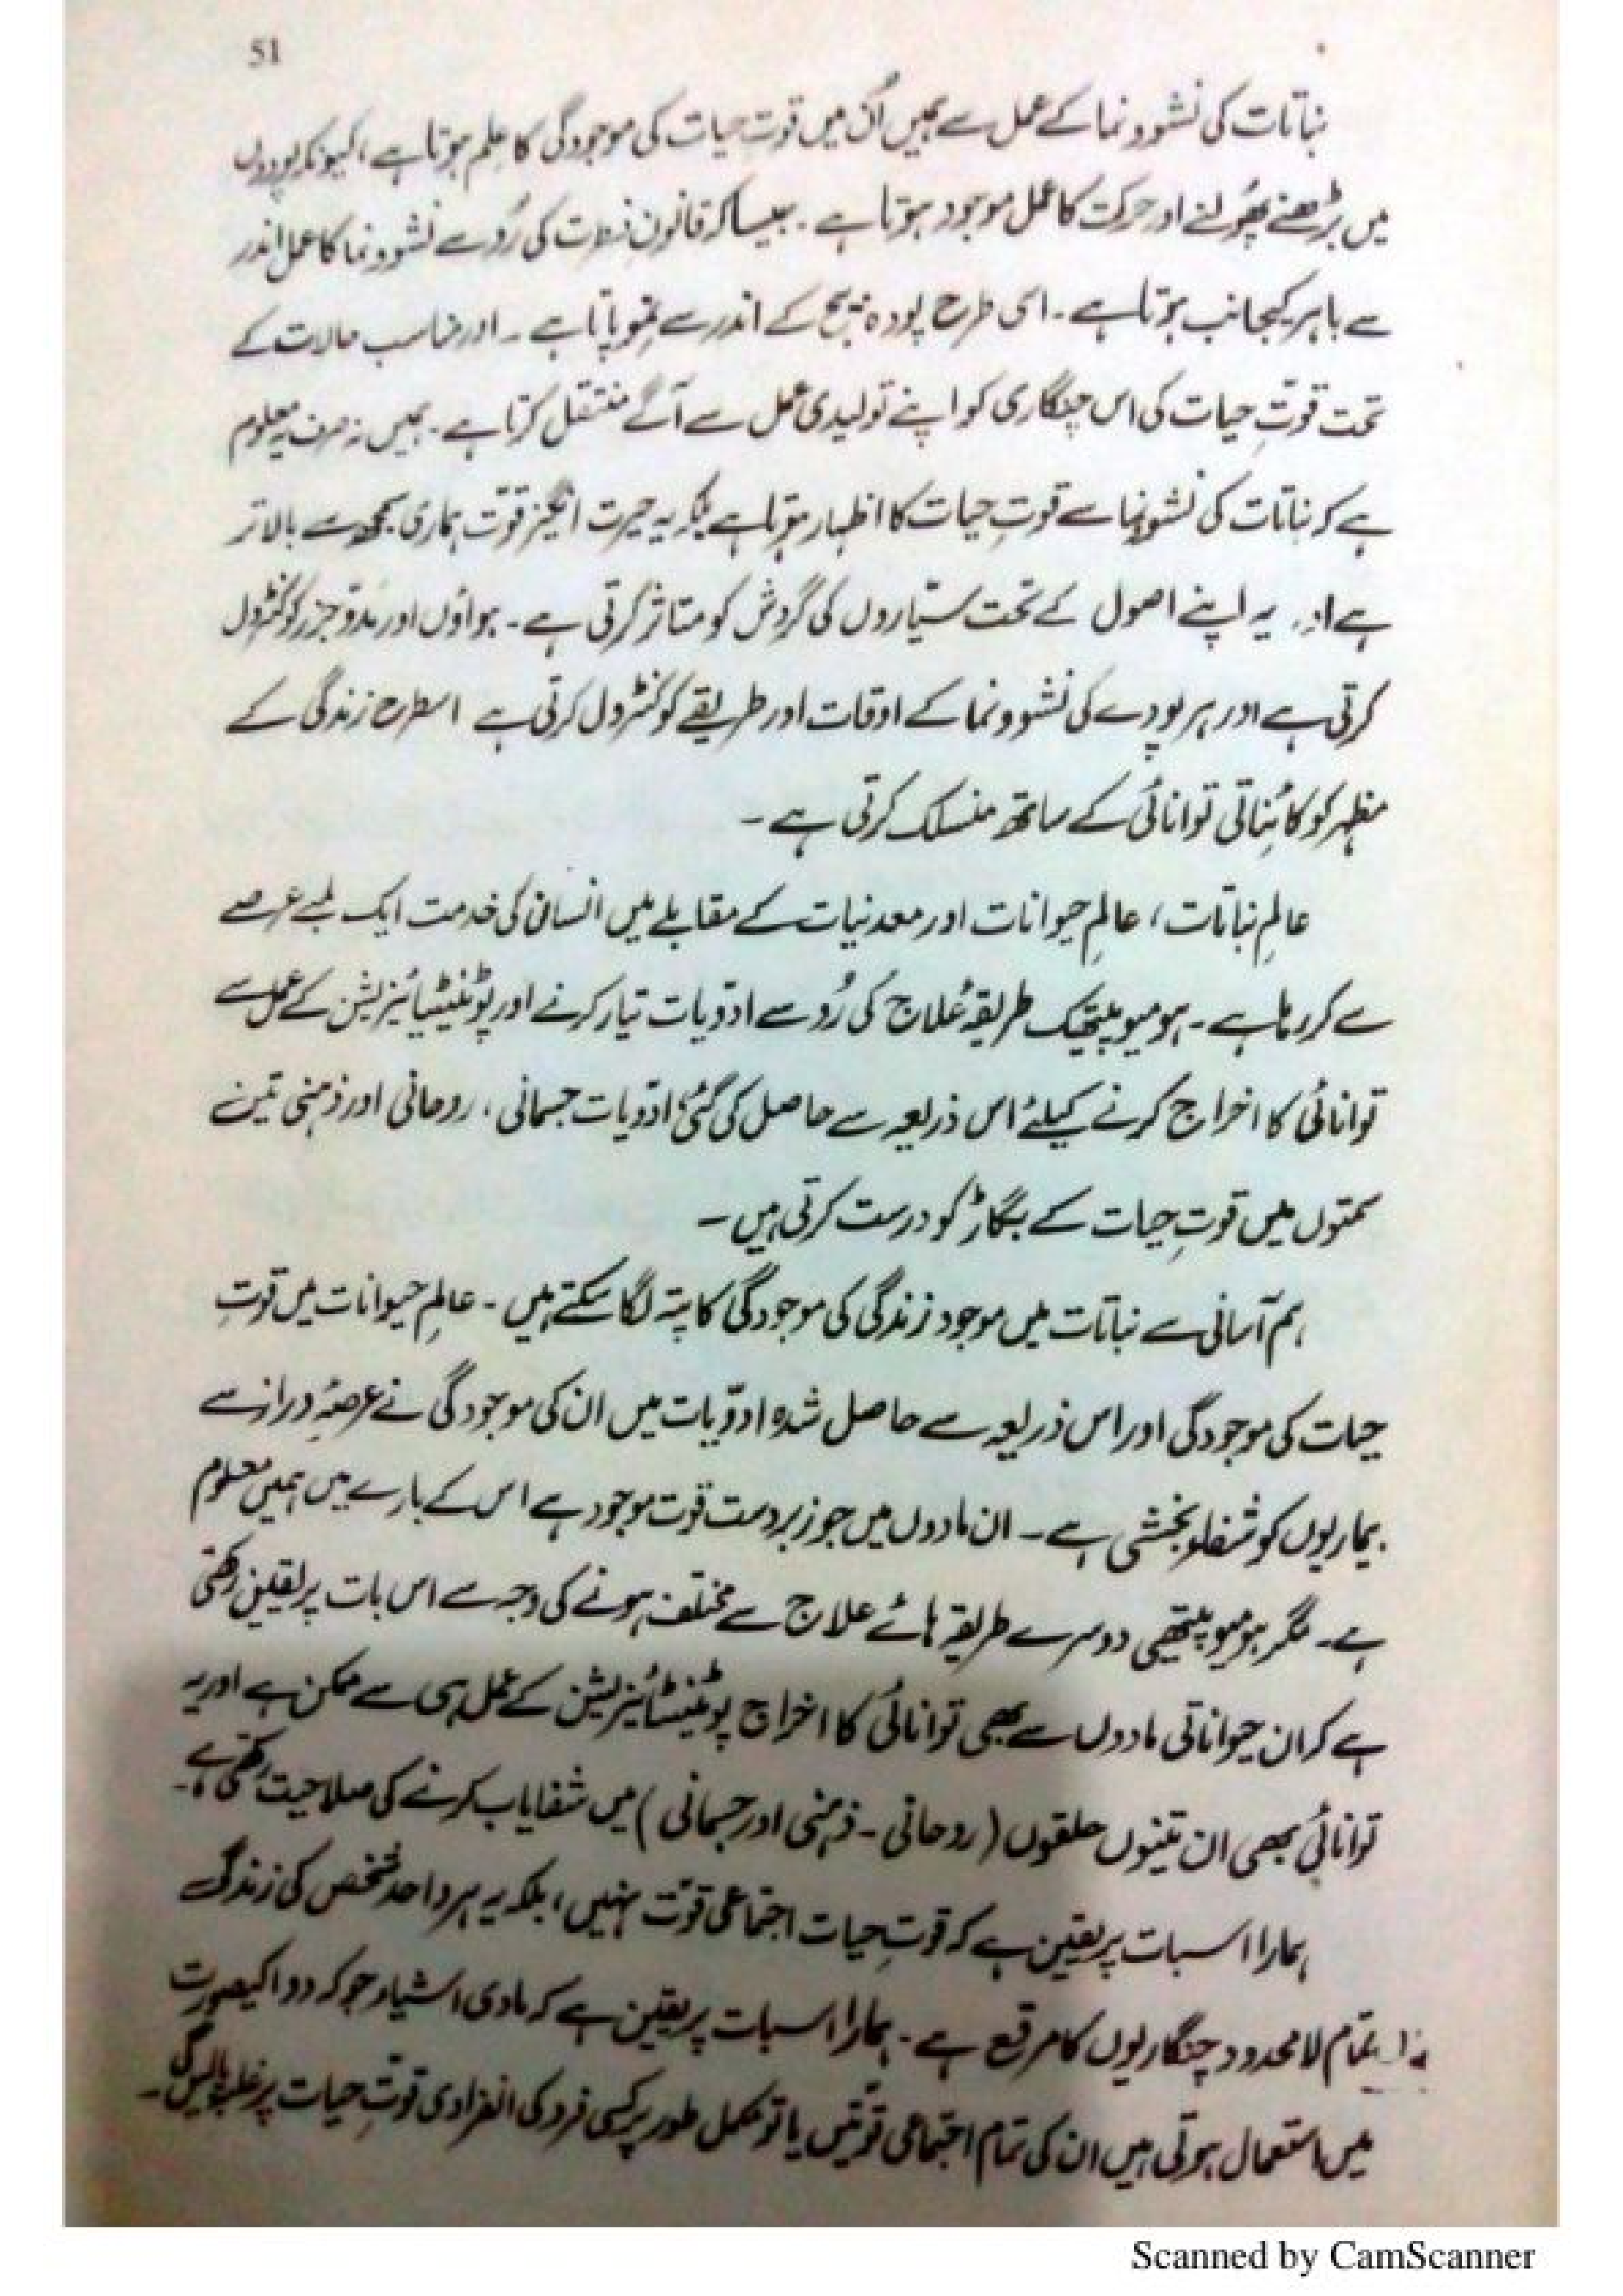 51
نباتات کی نشوونما کے عمل سے ہمیں اُن میں قوتِ حیات کی موجودگی کا علم ہوتا ہے، کیونکہ پودوں
میں بڑھنے پھُولنے اور حرکت کا عمل موجود ہوتا ہے۔ جیسا کہ قانونِ فطرت کی رُو سے نشوونما کا عمل اندر
سے باہر کیجانب ہوتا ہے۔ اسی طرح پودہ بیج کے اندر سے نمو پاتا ہے۔ اور مناسب حالات کے
تحت قوتِ حیات کی اس چنگاری کو اپنے تولیدی عمل سے آگے منتقل کرتا ہے۔ ہمیں نہ صرف یہ معلوم
ہے کہ نباتات کی نشوونما سے قوتِ حیات کا اظہار ہوتا ہے بلکہ یہ حیرت انگیز قوّت ہماری سمجھ سے بالاتر
ہے اور یہ اپنے اصول کے تحت سیّاروں کی گردش کو متاثر کرتی ہے۔ ہواؤں اور مدّ و جزر کو کنٹرول
کرتی ہے اور ہر پودے کی نشوونما کے اوقات اور طریقے کو کنٹرول کرتی ہے اسطرح زندگی کے
مظہر کو کائناتی توانائی کے ساتھ منسلک کرتی ہے۔
عالمِ نباتات، عالمِ حیوانات اور معدنیات کے مقابلے میں انسان کی خدمت ایک لمبے عرصے
سے کر رہا ہے۔ ہومیوپیتھیک طریقۂ علاج کی رُو سے ادویات تیار کرنے اور پوٹینٹیائیزیشن کے عمل سے
توانائی کا اخراج کرنے کیلئے اس ذریعہ سے حاصل کی گئی ادویات جسمانی، روحانی اور ذہنی تین
سمتوں میں قوتِ حیات کے بگاڑ کو درست کرتی ہیں۔
ہم آسانی سے نباتات میں موجود زندگی کی موجودگی کا پتہ لگا سکتے ہیں۔ عالمِ حیوانات میں قوتِ
حیات کی موجودگی اور اس ذریعہ سے حاصل شدہ ادوّیات میں ان کی موجودگی نے عرصۂ دراز سے
بیماریوں کو شفا بخشی ہے۔ ان مادوں میں جو زبردست قوت موجود ہے اس کے بارے میں ہمیں معلوم
ہے۔ مگر ہومیوپیتھی دوسرے طریقہ ہائے علاج سے مختلف ہونے کی وجہ سے اس بات پر یقین رکھتی
ہے کہ ان حیواناتی مادوں سے بھی توانائی کا اخراج پوٹینٹائیزیشن کے عمل ہی سے ممکن ہے اور یہ
توانائی بھی ان تینوں حلقوں (روحانی۔ ذہنی اور جسمانی) میں شفایاب کرنے کی صلاحیت رکھتی ہے۔
ہمارا اسبات پر یقین ہے کہ قوتِ حیات اجتماعی قوّت نہیں، بلکہ یہ ہر واحد شخص کی زندگی
تمام لامحدود چنگاریوں کا مرقع ہے۔ ہمارا اسبات پر یقین ہے کہ مادی اشیاء جو کہ دوا کیصورت
میں استعمال ہوتی ہیں ان کی تمام اجتماعی قوتیں یا تو مکمل طور پر کسی فرد کی انفرادی قوتِ حیات پر غلبہ پالیں گی۔
Scanned by CamScanner